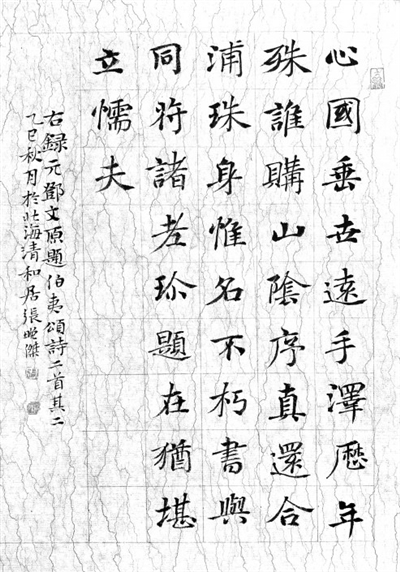 心國垂世遠手澤歷年
殊誰購山陰序真還合
浦珠身惟名不朽書與
同將諸老珍題在猶堪
立懦夫
右録元鄧文原題伯夷頌詩二首其二
乙巳秋月於北海清和居張曉傑